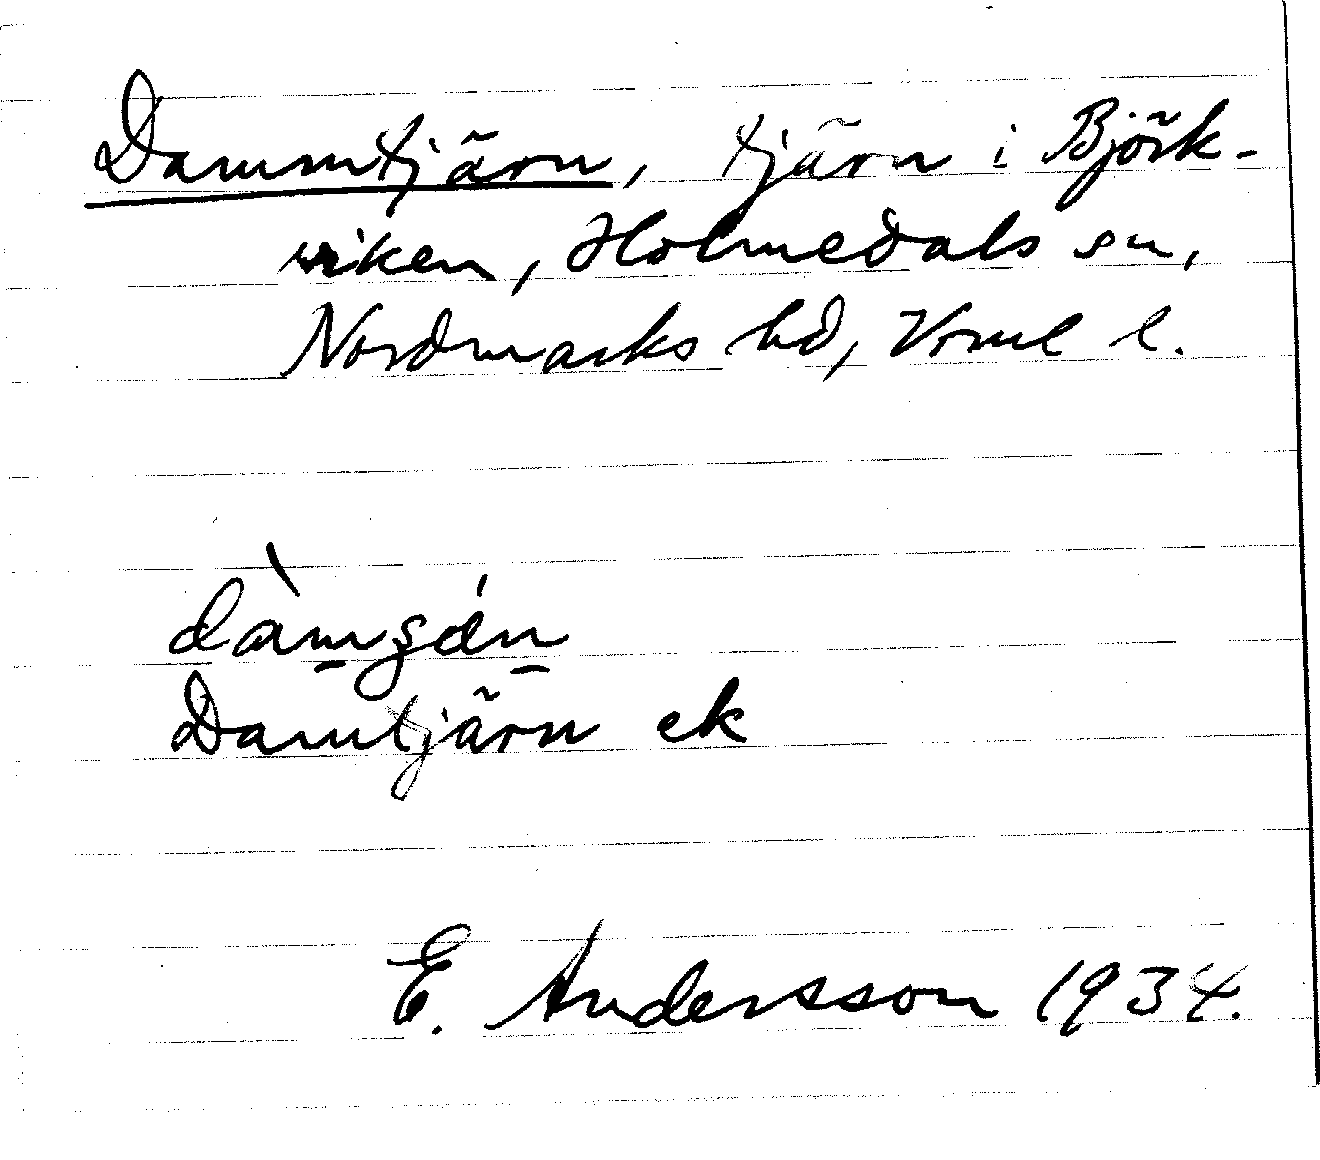 Dammtjärn, tjärn i Björk-
viken, Holmedals sn,
Nordmarks hd, Vrml l.
Damtjärn ek
E. Andersson 1934.